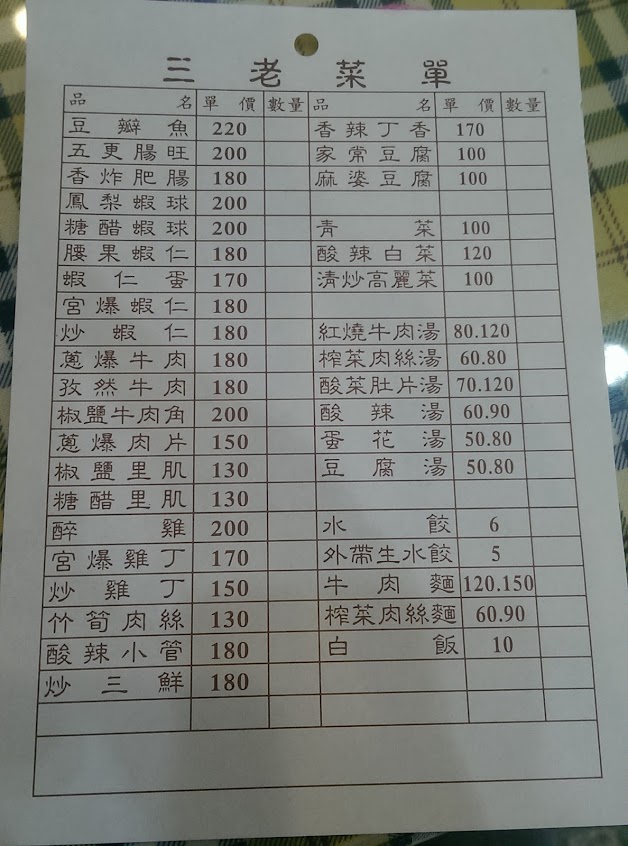 三老菜單
品名 單價 數量 品名 單價 數量
豆瓣魚 220 香辣丁香 170
五更腸旺 200 家常豆腐 100
香炸肥腸 180 麻婆豆腐 100
鳳梨蝦球 200
糖醋蝦球 200 青菜 100
腰果蝦仁 180 酸辣白菜 120
蝦仁蛋 170 清炒高麗菜 100
宮爆蝦仁 180
炒蝦仁 180 紅燒牛肉湯 80.120
蔥爆牛肉 180 榨菜肉絲湯 60.80
孜然牛肉 180 酸菜肚片湯 70.120
椒鹽牛肉角 200 酸辣湯 60.90
蔥爆肉片 150 蛋花湯 50.80
椒鹽里肌 130 豆腐湯 50.80
糖醋里肌 130
醉雞 200 水餃 6
宮爆雞丁 170 外帶生水餃 5
炒雞丁 150 牛肉麵 120.150
竹筍肉絲 130 榨菜肉絲麵 60.90
酸辣小管 180 白飯 10
炒三鮮 180